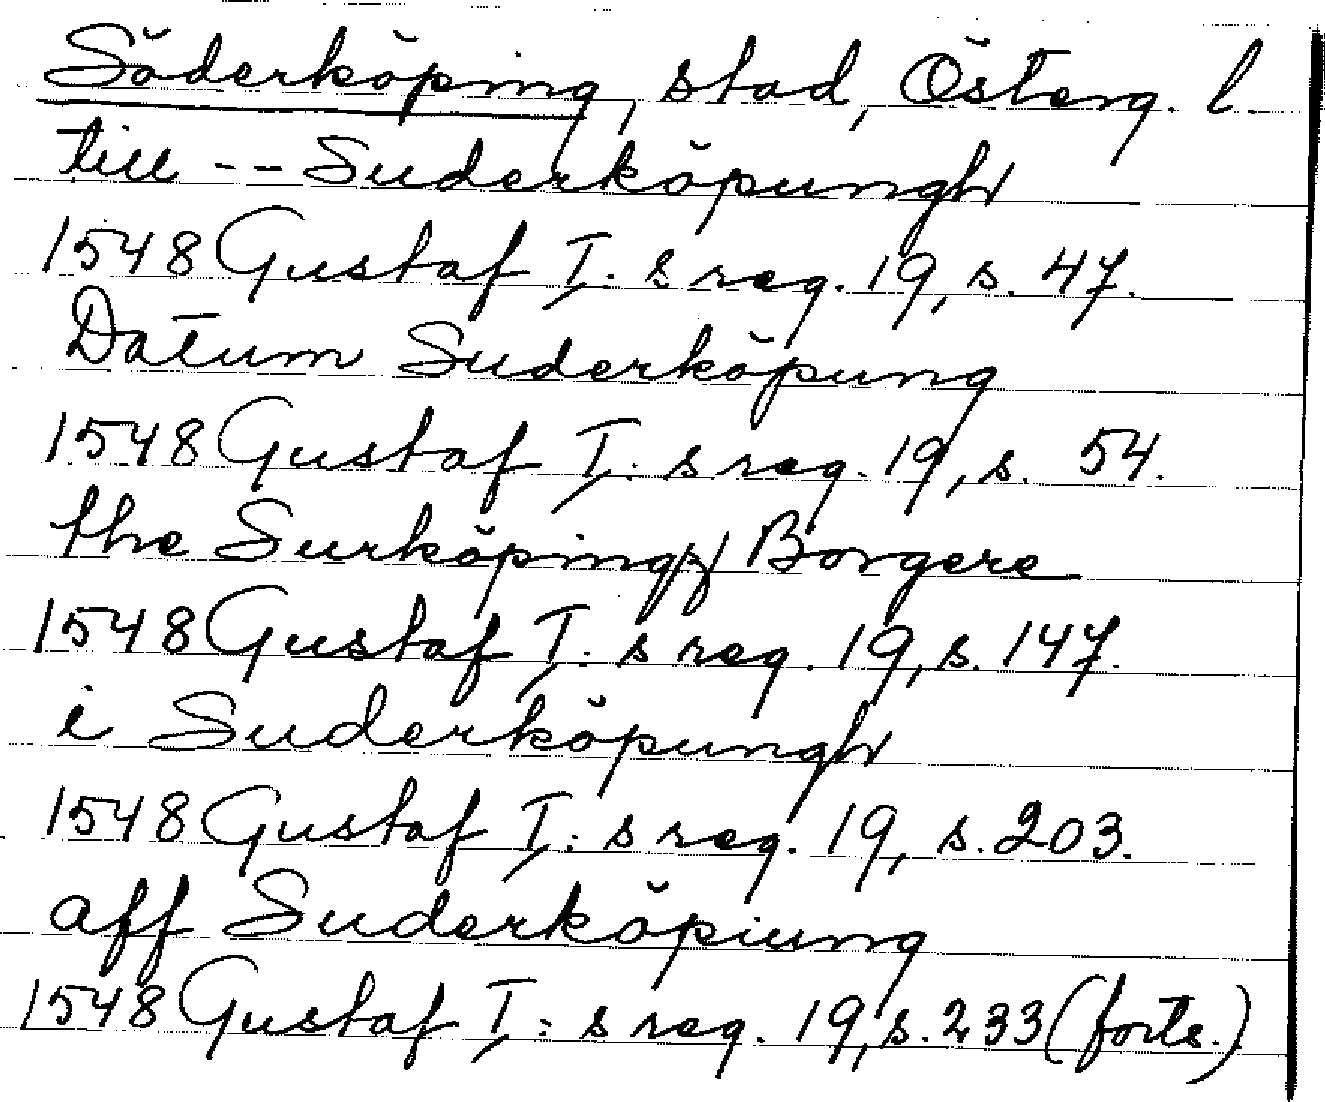 Söderköping, stad, Österg. l.
till -- Suderköpungh
1548 Gustaf I: s reg. 19, s. 47.
Datum Suderköpung
1548 Gustaf I: s reg. 19, s. 54.
the Surköpingx Borgere
1548 Gustaf I: s reg. 19, s. 147.
i Suderköpungh
1548 Gustaf I: s reg. 19, s. 203.
aff Suderköpiung
1548 Gustaf I: s reg. 19, s. 233 (forts.)